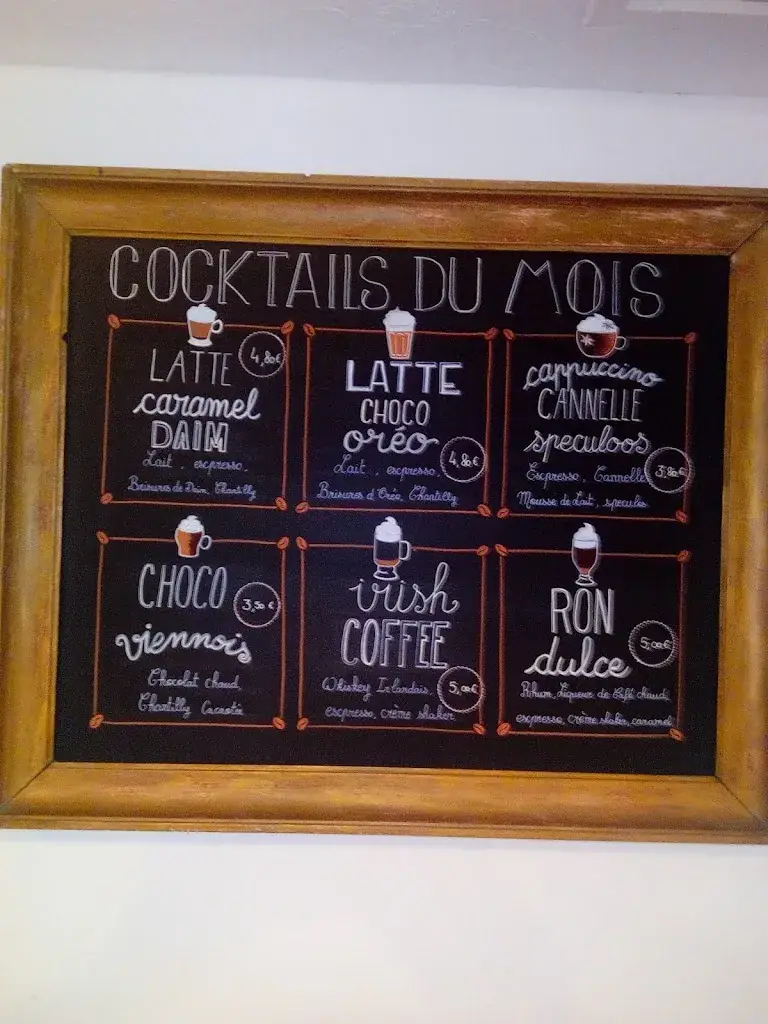 COCKTAILS DU MOIS
LATTE
4,80€
caramel
DAIM
Lait, espresso,
Brisures de Daim, Chantilly
LATTE
CHOCO
oréo
4,80€
Lait, espresso,
Brisures d'Oréo, Chantilly
cappuccino
CANNELLE
speculoos
3,80€
Espresso, Cannelle
Mousse de Lait, speculos
CHOCO
3,50€
viennois
Chocolat chaud,
Chantilly Cacaotée
irish
COFFEE
Whiskey Irlandais,
5,00€
espresso, crème shaker
RON
dulce
5,00€
Rhum, Liqueur de Café chaud,
espresso, crème shaker, caramel